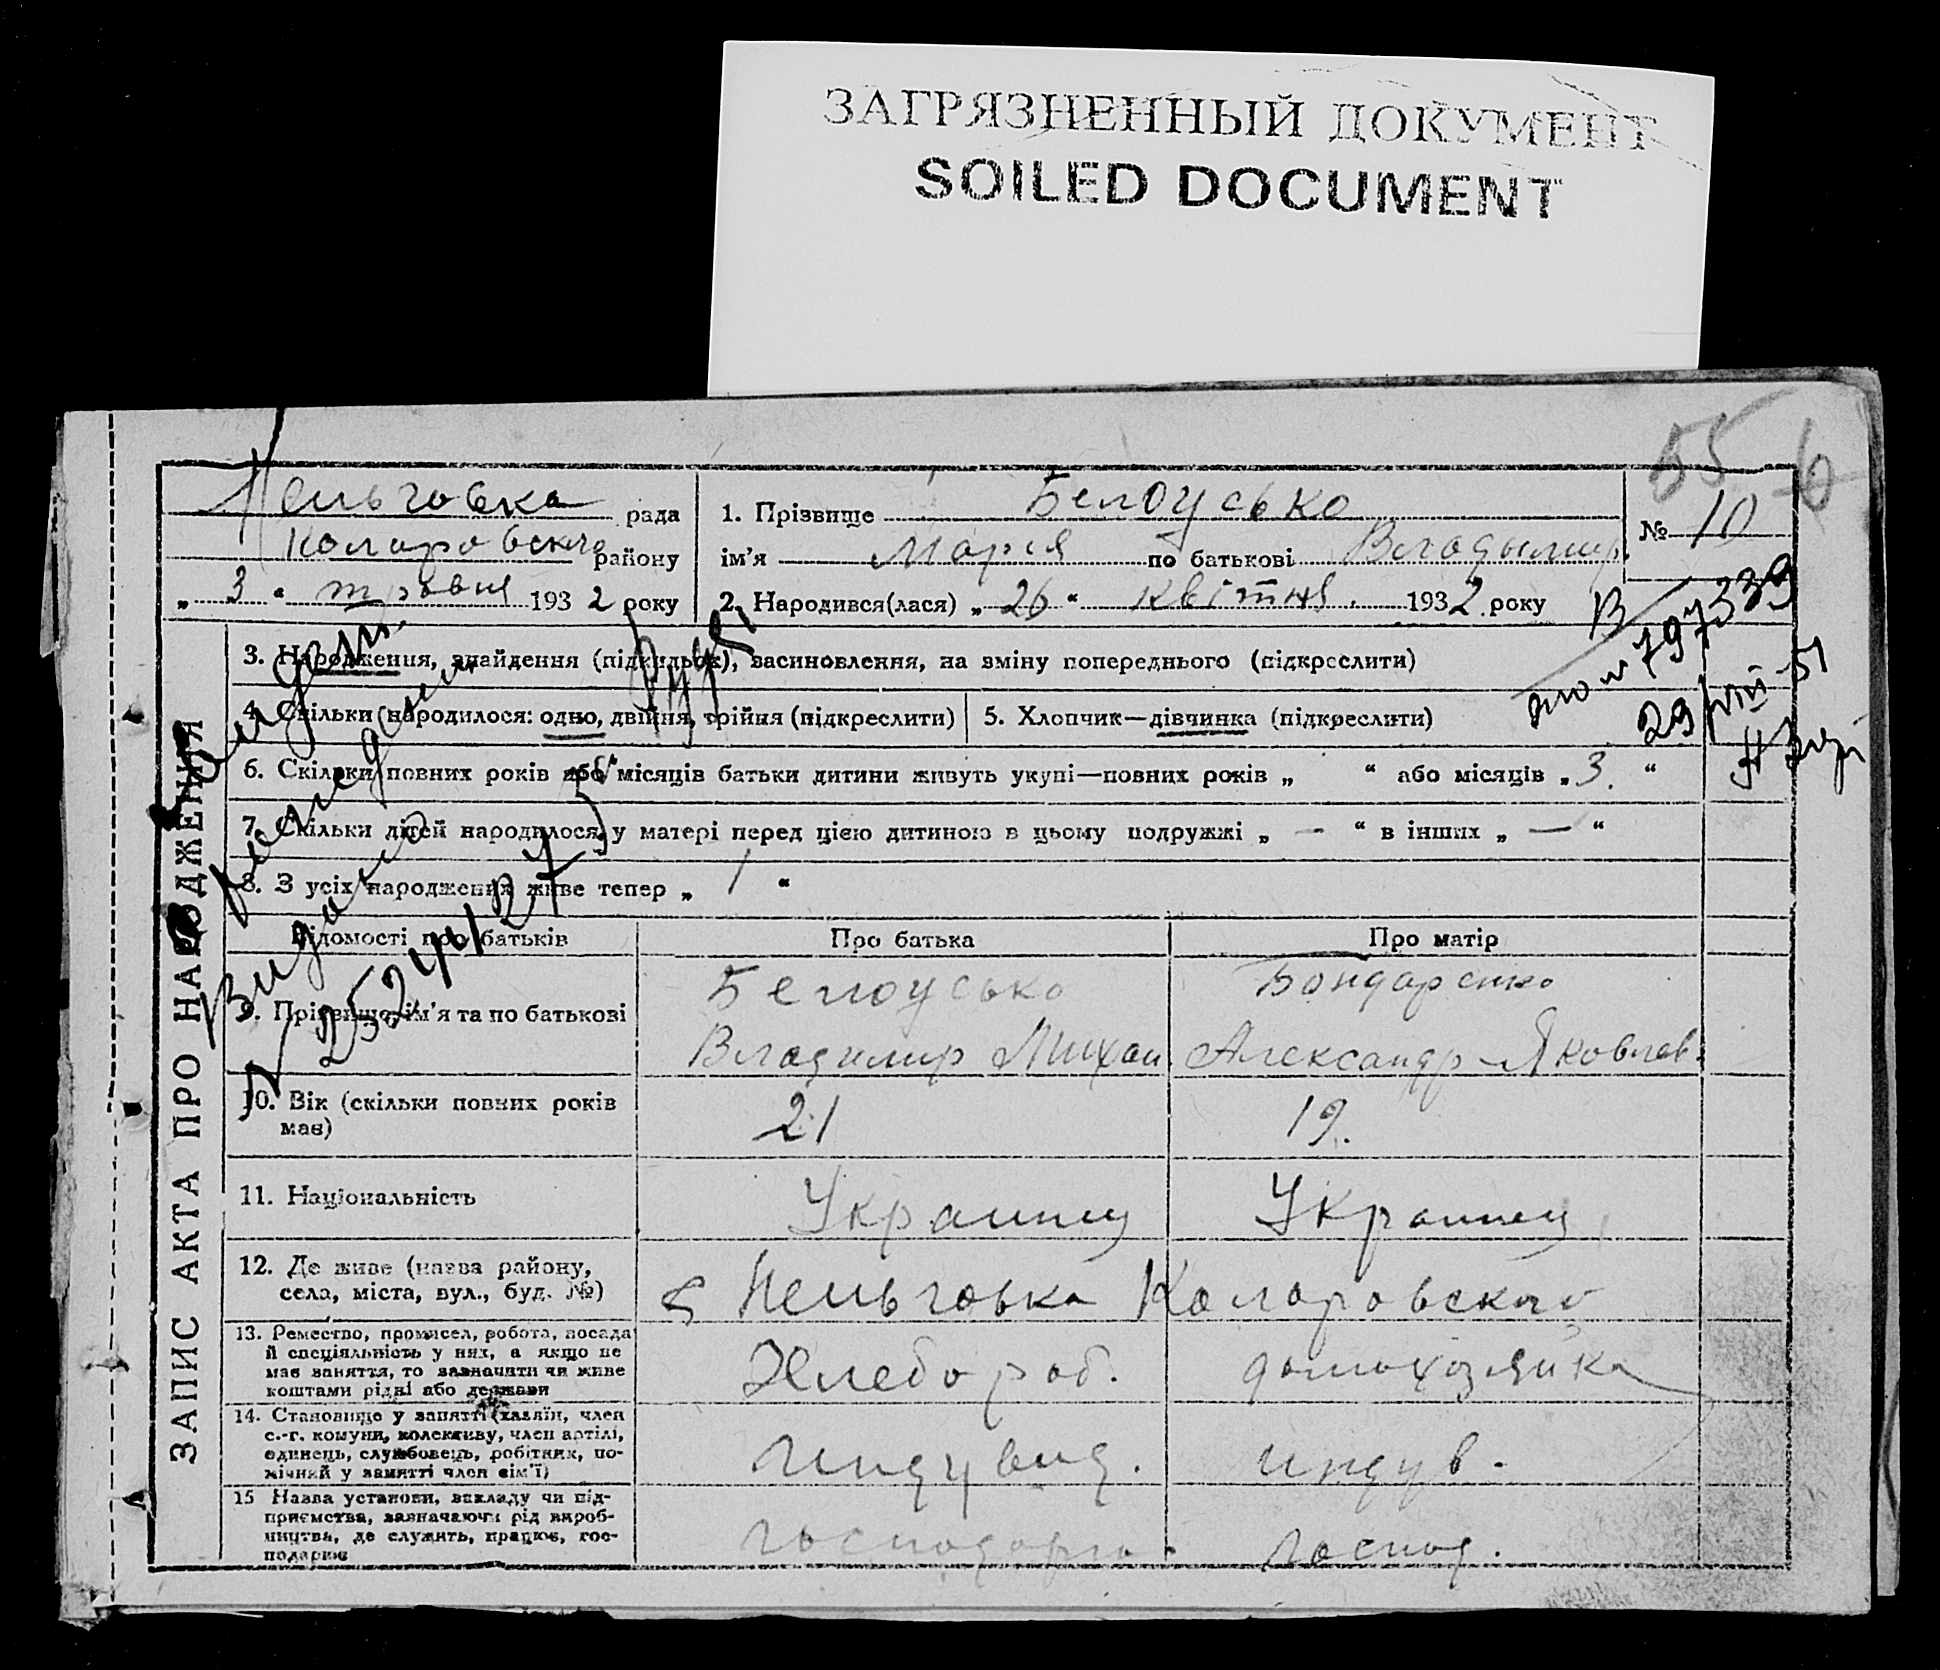 ЗАГРЯЗНЕННЫЙ ДОКУМЕНТ
SOILED DOCUMENT
55
Нельговка рада
Коларовского району
„ 3 “ травня 1932 року
1. Прізвище Белоусько
ім’я Марія по батькові Владымир.
2. Народився(лася) „ 26 “ квітня. 1932 року
№ 10
ЗАПИС АКТА ПРО НАРОДЖЕННЯ
3. Народження, знайдення (підкидьок), засиновлення, на зміну попереднього (підкреслити)
4. Скільки народилося: одно, двійня, трійня (підкреслити)
5. Хлопчик—дівчинка (підкреслити)
6. Скільки повних років або місяців батьки дитини живуть укупі—повних років „ “ або місяців „ 3. “
7. Скільки дітей народилося у матері перед цією дитиною в цьому подружжі „ — “ в інших „ — “
8. З усіх народжених живе тепер „ 1 “
797339
29/VIII-51
Відомості про батьків
Про батька
Про матір
9. Прізвище, ім’я та по батькові
Белоусько
Владимир Михаи.
Бондаренко
Александр Яковлев.
10. Вік (скільки повних років
має)
21
19.
11. Національність
Украинец
Украинец
12. Де живе (назва району,
села, міста, вул., буд. №)
с Нельговка Коларовского
13. Ремество, промисел, робота, посада
й спеціяльність у них, а якщо не
має заняття, то зазначити чи живе
коштами рідні або держави
Хлебороб.
домохозяйка
14. Становище у занятті (хазяїн, член
с.-г. комуни, колективу, член артілі,
одинець, службовець, робітник, по-
мічний у занятті член сім’ї)
Индувид.
индув.
15 Назва установи, викладу чи під-
приємства, зазначаючи рід вироб-
ництва, де служить, працює, гос-
подарює
господарю.
господ.